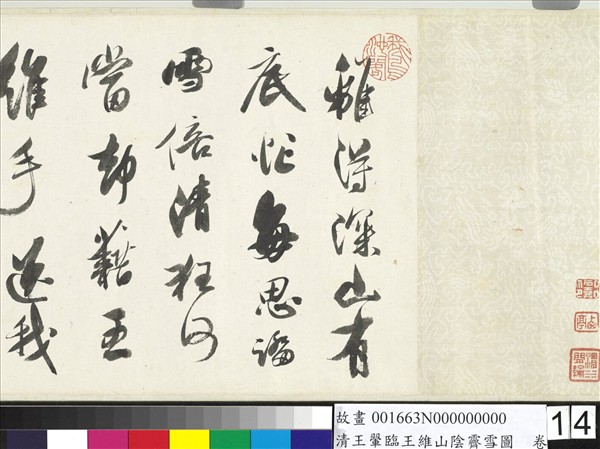 得深山有
底忙每思
雪倍清狂何
當却藉王
維手我
故畫 001663N000000000
清王翬臨王維山陰霽雪圖 卷
14